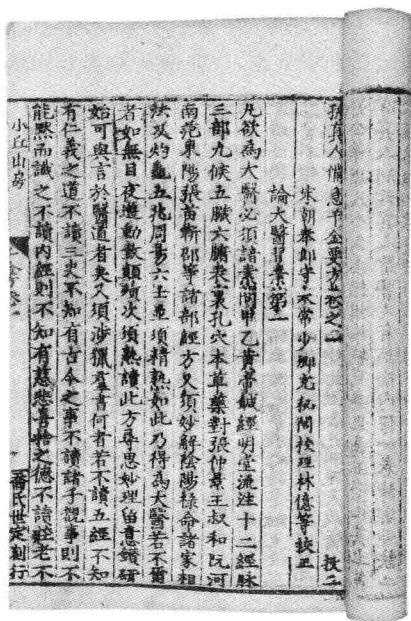 孫真人備急千金要方卷之二 扶二
宋朝奉郎守太常少卿充秘閣校理林億等校正
論大醫習業第一
凡欲為大醫必須諳素問甲乙黃帝鍼經明堂流注十二經脉
三部九候五臟六腑表裏孔穴本草藥對張仲景王叔和阮河
南范東陽張苗靳邵等諸部經方又須妙解陰陽祿命諸家相
法及灼龜五兆周易六壬並須精熟如此乃得為大醫若不爾
者如無目夜遊動致顛殞次須熟讀此方尋思妙理留意鑽研
始可與言於醫道者矣又須涉獵羣書何者若不讀五經不知
有仁義之道不讀三史不知有古今之事不讀諸子覩事則不
能默而識之不讀內經則不知有慈悲喜捨之德不讀莊老不
小丘山房
喬氏世定刻行